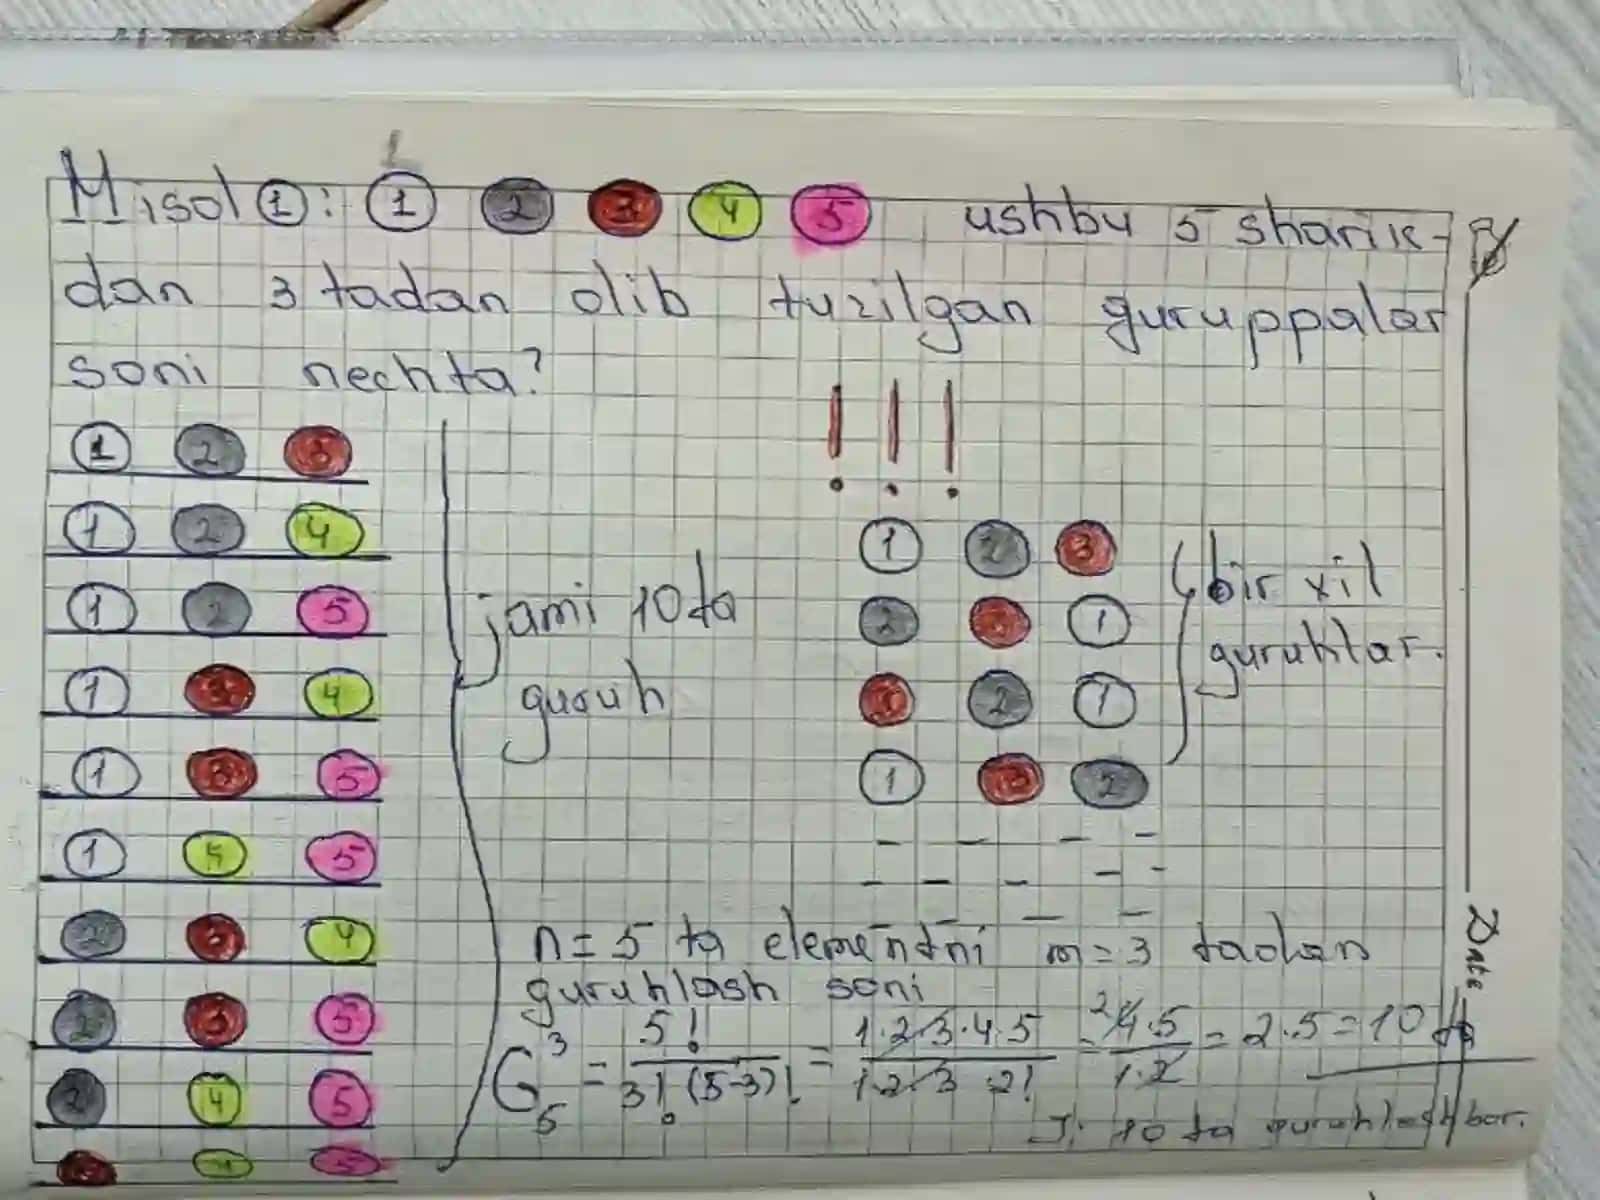 Misol ①: ① ② ③ ④ ⑤ ushbu 5 sharik-
dan 3 tadan olib tuzilgan guruppalar
soni nechta?
! ! !
① ② ③
① ② ④
① ② ⑤
① ③ ④
① ③ ⑤
① ④ ⑤
② ③ ④
② ③ ⑤
② ④ ⑤
③ ④ ⑤
jami 10 ta
guruh
① ② ③
② ③ ①
③ ② ①
① ③ ②
bir xil
guruhlar.
n=5 ta elementni m=3 tadan
guruhlash soni
G₅³ = 5!/3!(5-3)! = 1·2·3·4·5/1·2·3·2! = 4·5/1·2 = 2·5=10 ta
J: 10 ta guruhlash bor.
Date